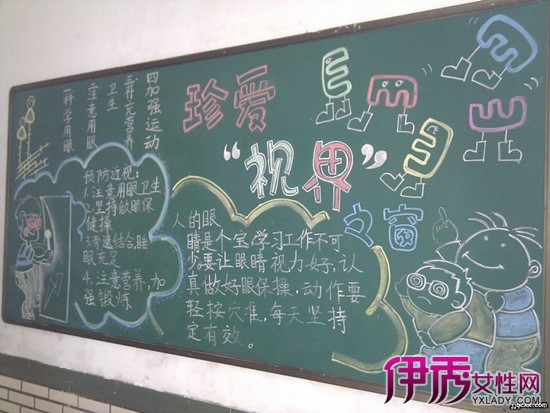 一科学用眼
二注意用眼
卫生
三补充营养
四加强运动
珍爱
“视界”
之窗
预防近视:
1.注意用眼卫生
2.坚持做眼保
健操
3.劳逸结合,睡
眠充足
4.注意营养,加
强锻炼
人的眼
睛是个宝,学习工作不可
少要让眼睛视力好,认
真做好眼保操,动作要
轻按穴准,每天坚持
定有效。
伊秀女性网
YXLADY.COM